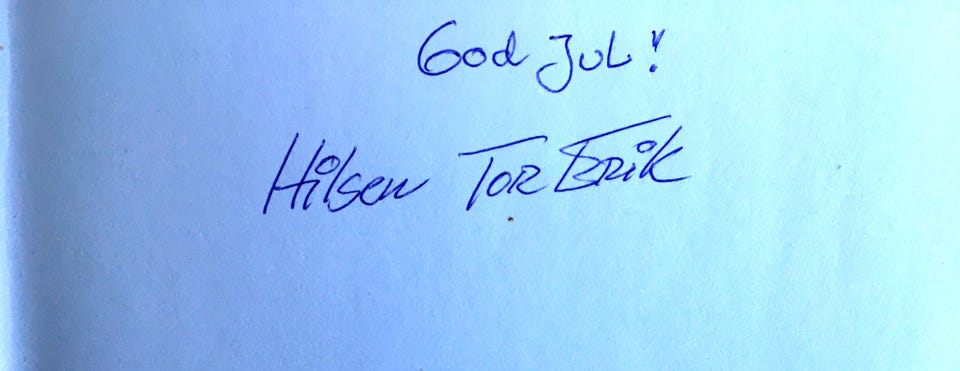 God Jul!
Hilsen Tor Erik